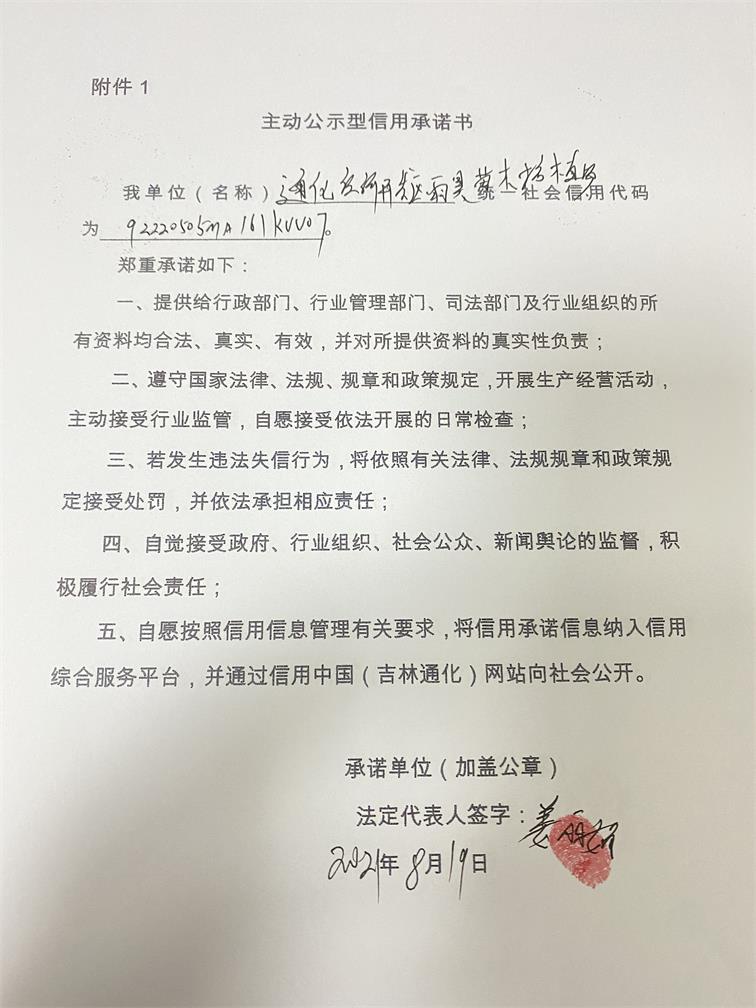 附件1
主动公示型信用承诺书
我单位（名称）通化 统一社会信用代码
为 92220505MA161KUU07。
郑重承诺如下：
一、提供给行政部门、行业管理部门、司法部门及行业组织的所
有资料均合法、真实、有效，并对所提供资料的真实性负责；
二、遵守国家法律、法规、规章和政策规定，开展生产经营活动，
主动接受行业监管，自愿接受依法开展的日常检查；
三、若发生违法失信行为，将依照有关法律、法规规章和政策规
定接受处罚，并依法承担相应责任；
四、自觉接受政府、行业组织、社会公众、新闻舆论的监督，积
极履行社会责任；
五、自愿按照信用信息管理有关要求，将信用承诺信息纳入信用
综合服务平台，并通过信用中国（吉林通化）网站向社会公开。
承诺单位（加盖公章）
法定代表人签字：姜
2021年8月19日